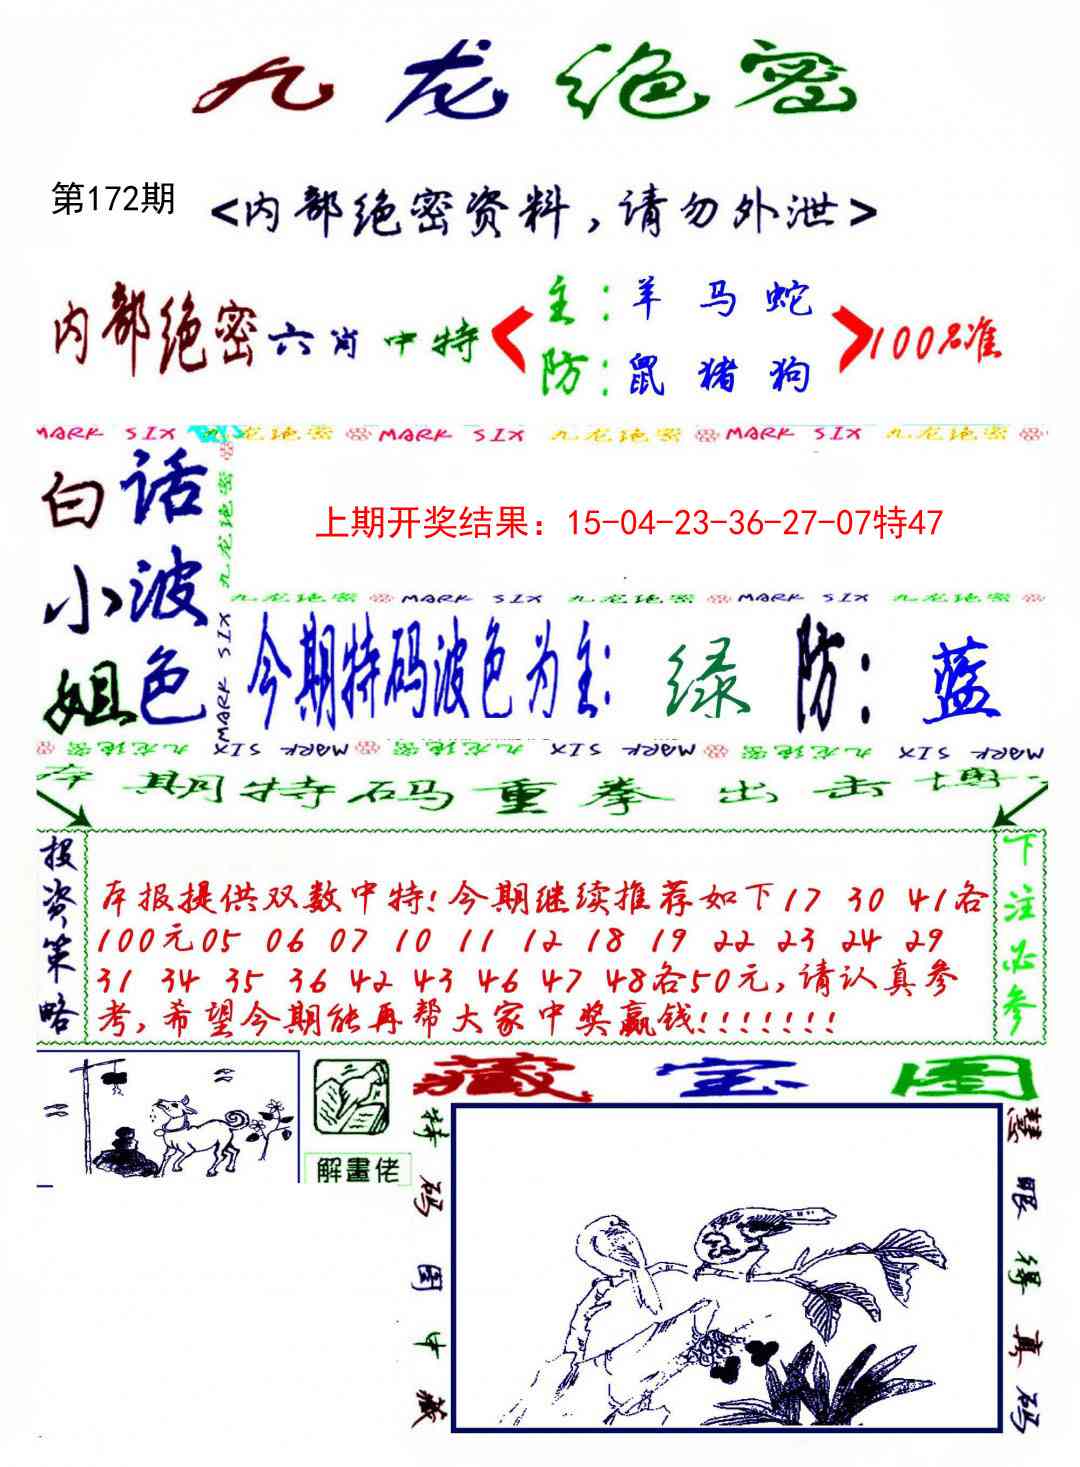 九龙绝密
第172期
<内部绝密资料，请勿外泄>
内部绝密六肖中特
主：羊 马 蛇
防：鼠 猪 狗
100%准
MARK SIX 九龙绝密 MARK SIX 九龙绝密 MARK SIX 九龙绝密
白话
小波
姐色
九龙绝密
MARK SIX
上期开奖结果：15-04-23-36-27-07特47
九龙绝密 MARK SIX 九龙绝密 MARK SIX 九龙绝密
今期特码波色为主：绿 防：蓝
九龙绝密 MARK SIX 九龙绝密 MARK SIX 九龙绝密 MARK SIX
本期特码重拳出击博
投资策略
本报提供双数中特!今期继续推荐如下17 30 41各
100元05 06 07 10 11 12 18 19 22 23 24 29
31 34 35 36 42 43 46 47 48各50元,请认真参
考,希望今期能再帮大家中奖赢钱!!!!!!!
下注必参
解畫佬
藏宝图
特码图中藏
慧眼得真码